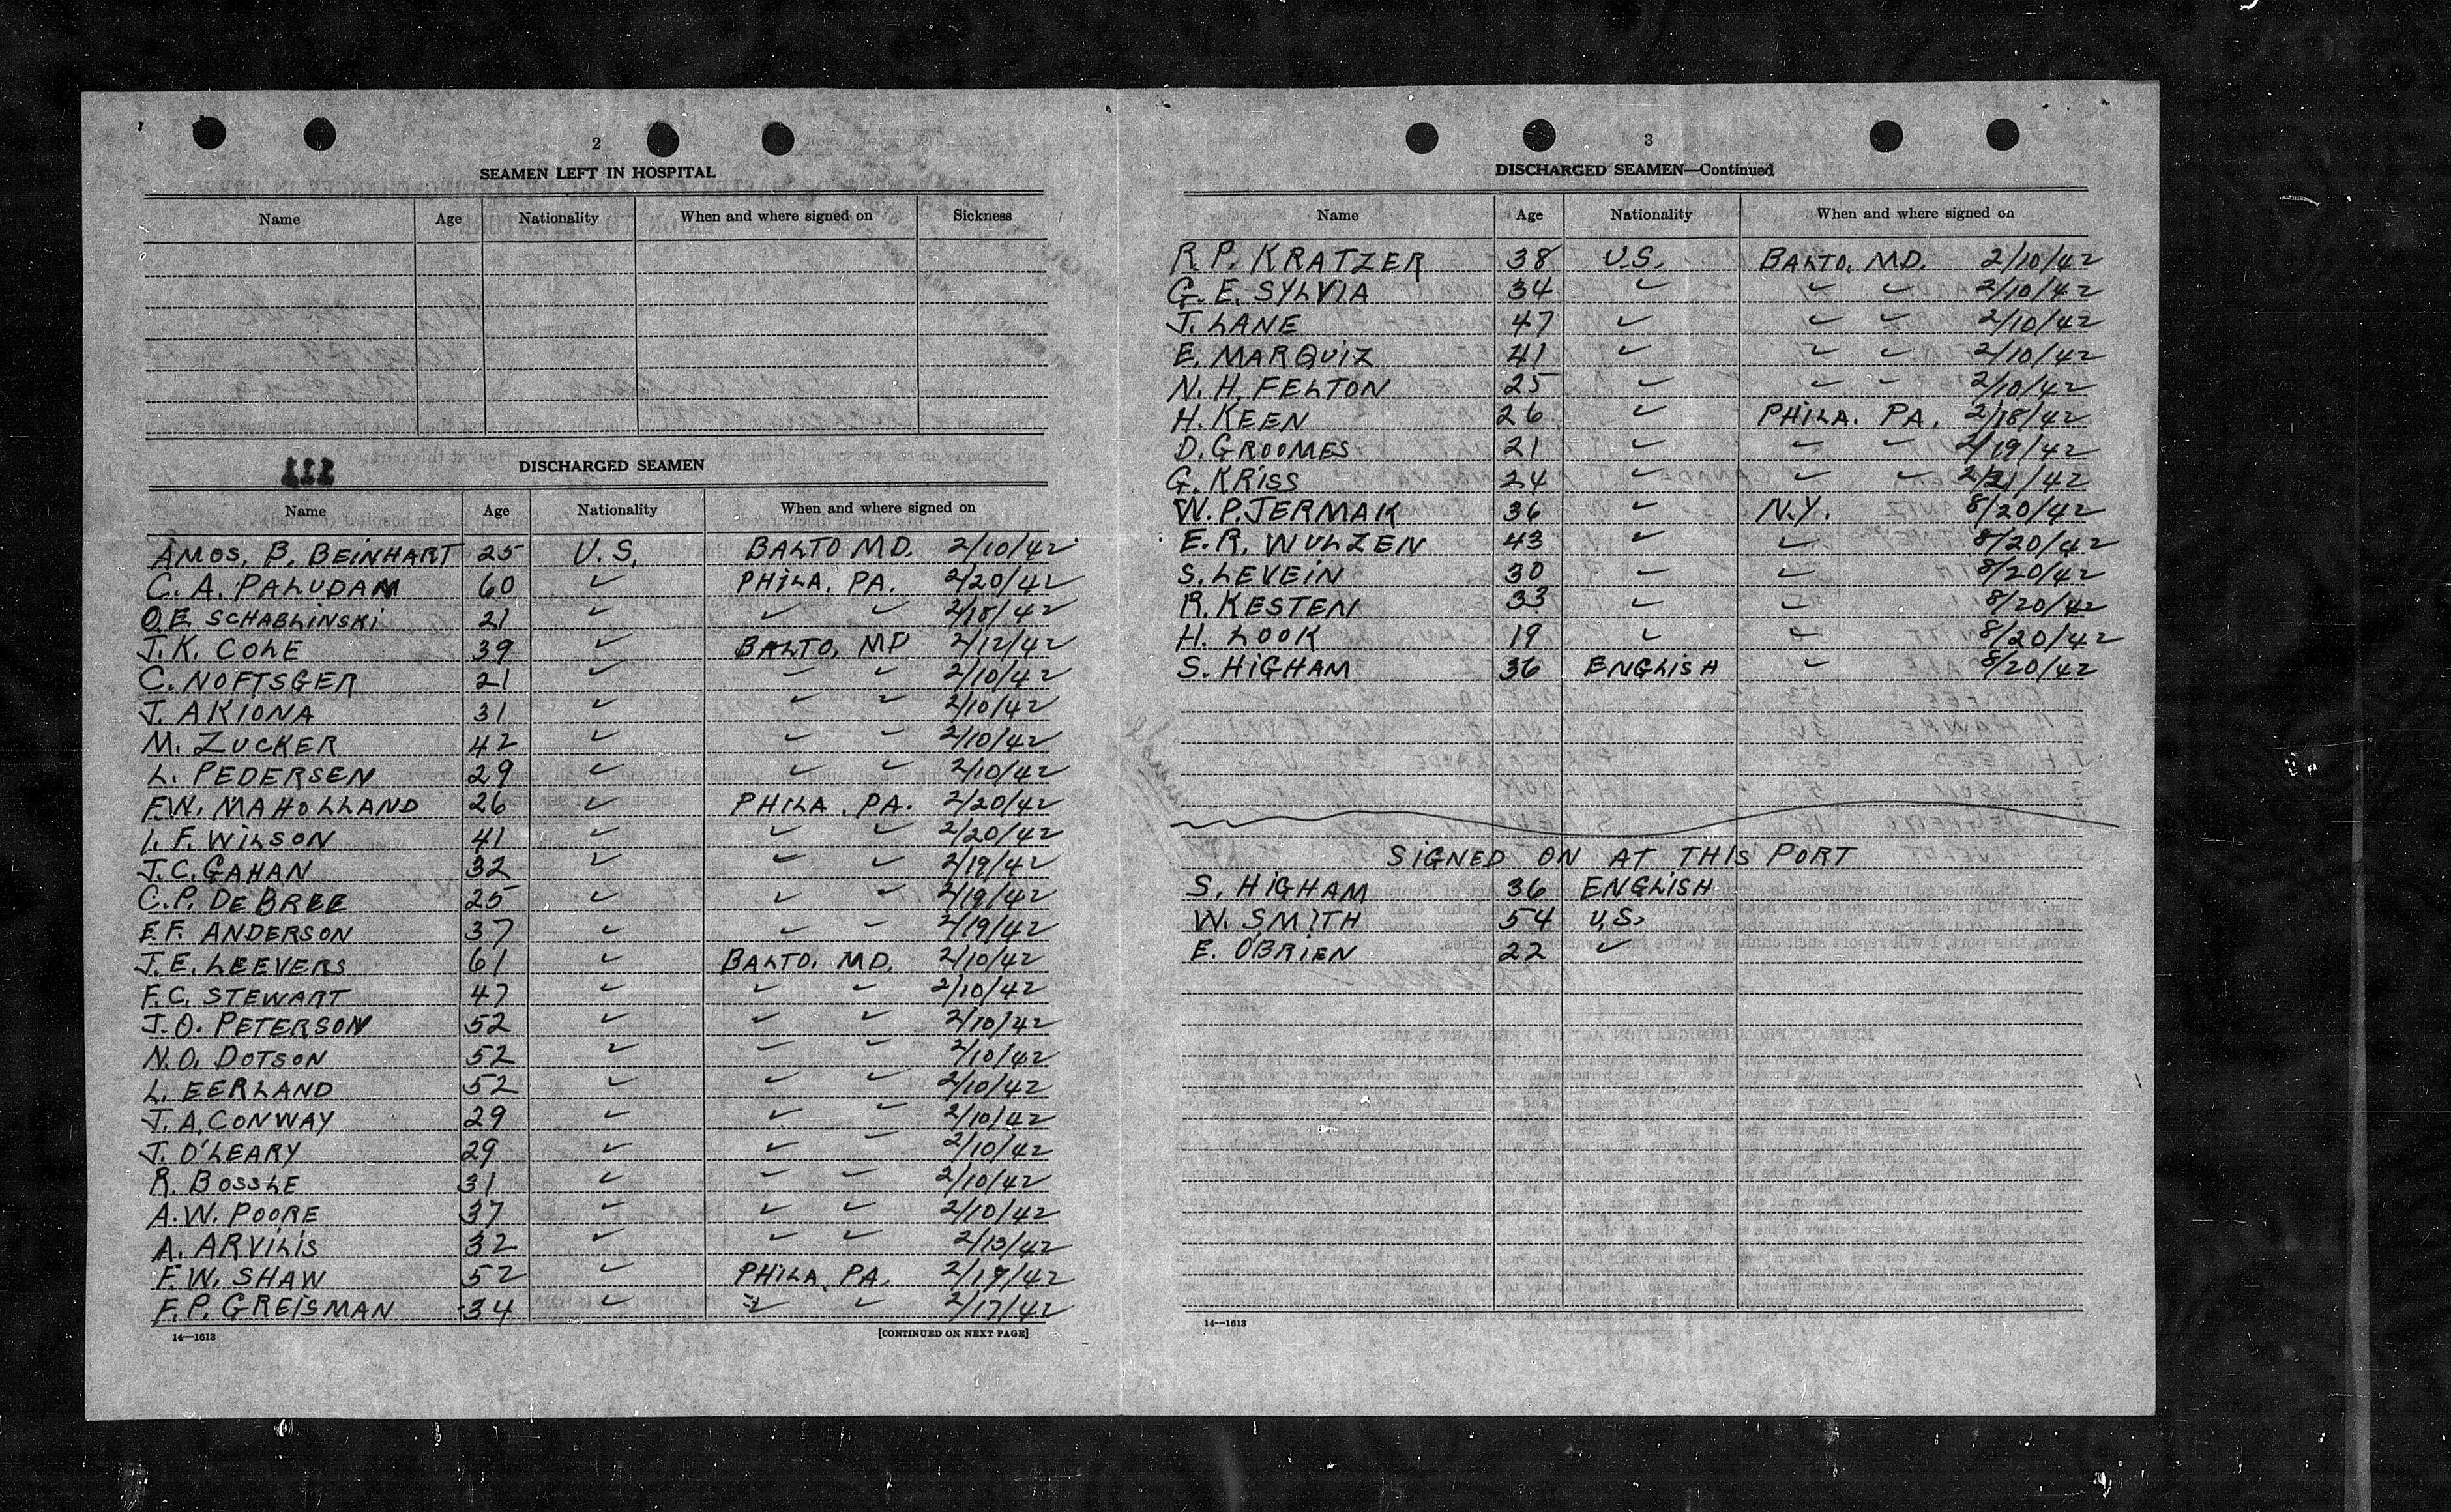 2
SEAMEN LEFT IN HOSPITAL
Name Age Nationality When and where signed on Sickness
111
DISCHARGED SEAMEN
Name Age Nationality When and where signed on
AMOS. B. BEINHART 25 U.S. BALTO MD. 2/10/42
C. A. PALUDAM 60 ✓ PHILA. PA. 2/20/42
O.E. SCHABLINSKI 21 ✓ ✓ ✓ 2/18/42
J. K. COLE 39 ✓ BALTO. MD 2/12/42
C. NOFTSGER 21 ✓ ✓ ✓ 2/10/42
J. AKIONA 31 ✓ ✓ ✓ 2/10/42
M. ZUCKER 42 ✓ ✓ ✓ 2/10/42
L. PEDERSEN 29 ✓ ✓ ✓ 2/10/42
F.W. MAHOLLAND 26 ✓ PHILA. PA. 2/20/42
I. F. WILSON 41 ✓ ✓ ✓ 2/20/42
J. C. GAHAN 32 ✓ ✓ ✓ 2/19/42
C. P. DEBREE 25 ✓ ✓ ✓ 2/19/42
E. F. ANDERSON 37 ✓ ✓ ✓ 2/19/42
J. E. LEEVERS 61 ✓ BALTO. MD. 2/10/42
F. C. STEWART 47 ✓ ✓ ✓ 2/10/42
J. O. PETERSON 52 ✓ ✓ ✓ 2/10/42
N. O. DOTSON 52 ✓ ✓ ✓ 2/10/42
L. EERLAND 52 ✓ ✓ ✓ 2/10/42
J. A. CONWAY 29 ✓ ✓ ✓ 2/10/42
J. O'LEARY 29 ✓ ✓ ✓ 2/10/42
R. BOSSLE 31 ✓ ✓ ✓ 2/10/42
A. W. POORE 37 ✓ ✓ ✓ 2/10/42
A. ARVILIS 32 ✓ ✓ ✓ 2/13/42
F. W. SHAW 52 ✓ PHILA. PA. 2/19/42
F. P. GREISMAN 34 ✓ ✓ ✓ 2/17/42
14—1613 [CONTINUED ON NEXT PAGE]
3
DISCHARGED SEAMEN—Continued
Name Age Nationality When and where signed on
R. P. KRATZER 38 U.S. BALTO. MD. 2/10/42
G. E. SYLVIA 34 ✓ ✓ ✓ 2/10/42
J. LANE 47 ✓ ✓ ✓ 2/10/42
E. MARQUIZ 41 ✓ ✓ ✓ 2/10/42
N. H. FELTON 25 ✓ ✓ ✓ 2/10/42
H. KEEN 26 ✓ PHILA. PA. 2/18/42
D. GROOMES 21 ✓ ✓ ✓ 2/19/42
G. KRISS 24 ✓ ✓ ✓ 2/21/42
W. P. JERMAK 36 ✓ N.Y. 8/20/42
E. R. WULZEN 43 ✓ ✓ 8/20/42
S. LEVEIN 30 ✓ ✓ 8/20/42
R. KESTEN 33 ✓ ✓ 8/20/42
H. LOOK 19 ✓ ✓ 8/20/42
S. HIGHAM 36 ENGLISH ✓ 8/20/42
SIGNED ON AT THIS PORT
S. HIGHAM 36 ENGLISH
W. SMITH 54 U.S.
E. O'BRIEN 22 ✓
14—1613